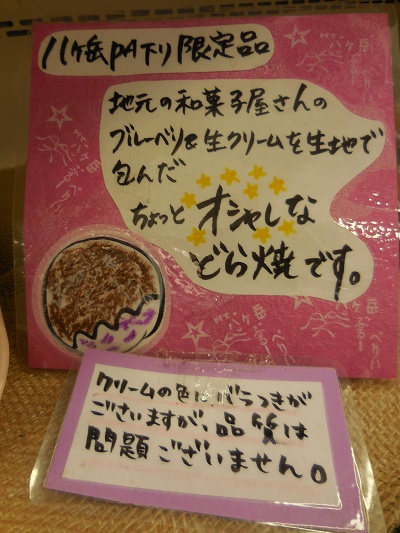 八ヶ岳PA下り限定品
地元の和菓子屋さんの
ブルーベリ&生クリームを生地で
包んだ
ちょっとオシャレな
どら焼です。
クリームの色にバラつきが
ございますが、品質は
問題ございません。